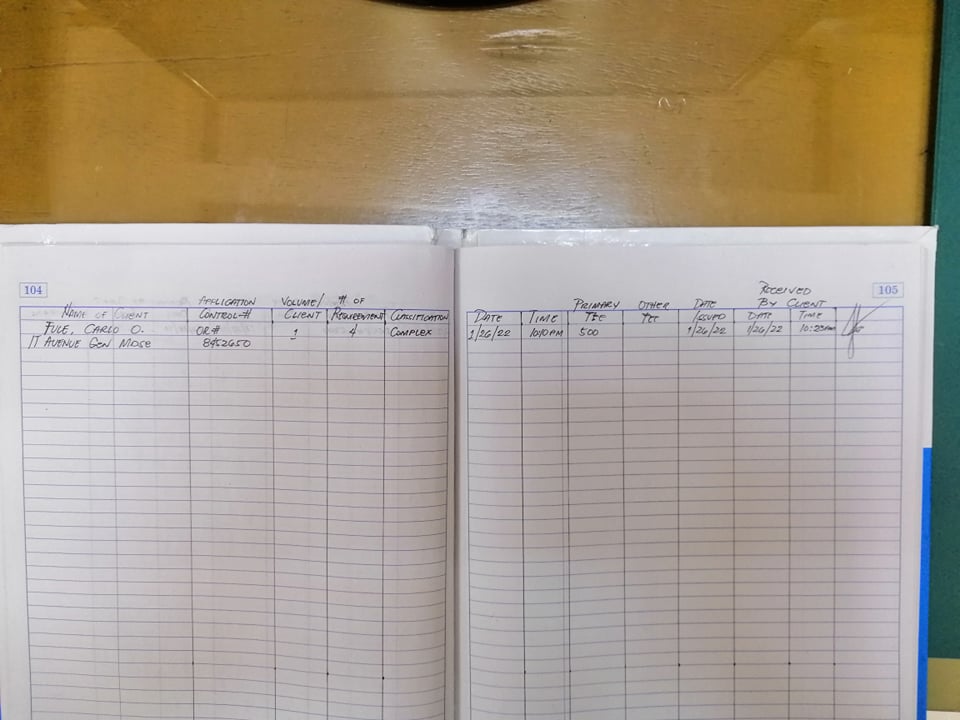 104
APPLICATION VOLUME/ # OF
NAME OF CLIENT CONTROL# CLIENT REQUIREMENT CLASSIFICATION
FULE, CARLO O. OR# 1 4 COMPLEX
IT AVENUE GEN MDSE 8452650
RECEIVED 105
PRIMARY OTHER DATE BY CLIENT
DATE TIME FEE FEE ISSUED DATE TIME
1/26/22 500 1/26/22 1/26/22